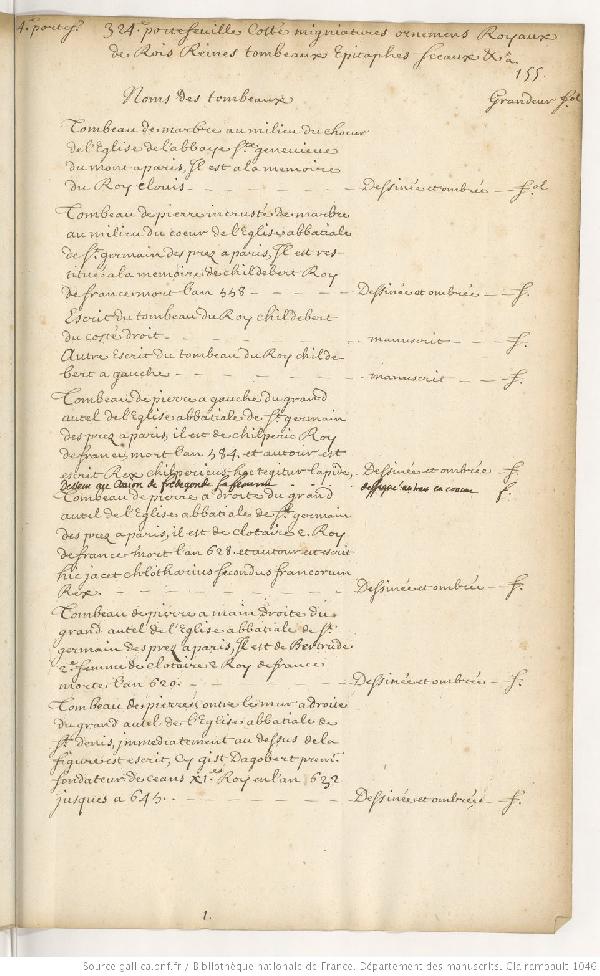 4.e portef.
324.e portefeuille Cotté migniatures ornemens Royaux
de Rois Reines tombeaux Epitaphes sceaux &.a
155.
Noms des tombeaux Grandeur fol
Tombeau de marbre au milieu du choeur
de l'Eglise de l'abbaye S.te genevieve
du mont a paris, Il est a la memoire
du Roy Clouis - - - - - Dessinée et ombrée - fol
Tombeau de pierre incrusté de marbre
au milieu du coeur de l'Eglise abbatiale
de S.t germain des prez a paris, Il est res-
titué a la memoire de childebert Roy
de france mort l'an 558 - - - - Dessinée et ombrée - - f.
Escrit du tombeau du Roy childebert
du costé droit - - - - - manuscrit - - - f.
Autre Escrit du tombeau du Roy childe-
bert a gauche - - - - - manuscrit - - - f.
Tombeau de pierre a gauche du grand
autel de l'Eglise abbatiale de S.t germain
des prez a paris, il est de chilperic Roy
de france mort l'an 584. et autour est
escrit Rex chilpericus hoc tegitur lapide, Dessinée et ombrée f.
de fredegonde sa femme f.
Tombeau de pierre a droite du grand
autel de l'Eglise abbatiale de S.t germain
des prez a paris, il est de clotaire 2. Roy
de france mort l'an 628. et autour est escrit
hic jacet chlotharius secondus francorum
Rex. - - - - - Dessinée et ombrée - f.
Tombeau de pierre a main droite du
grand autel de l'Eglise abbatiale de S.t
germain des prez a paris, Il est de Bertrude
2.e femme de clotaire 2 Roy de france
morte l'an 620. - - - - - Dessinée et ombrée - f.
Tombeau de pierre contre le mur a droite
du grand autel de l'Eglise abbatiale de
S.t denis, immediatement au dessus de la
figure est escrit, Cy gist Dagobert prem.r
fondateur de ceans XI.e Roy en l'an 632
jusques a 645. - - - - - Dessinée et ombrée - f.
1.
Source gallica.bnf.fr / Bibliothèque nationale de France. Département des manuscrits. Clairambault 1046